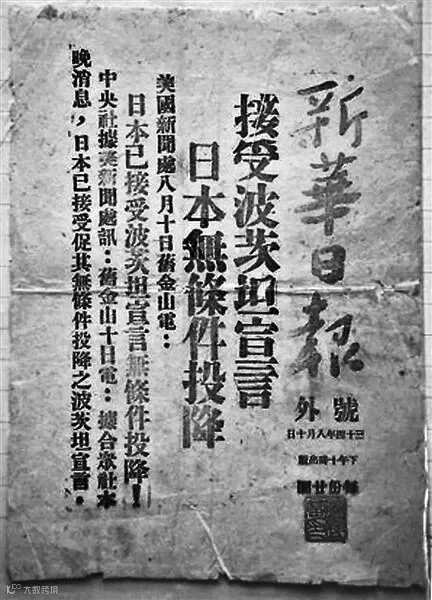 新華日報
號外
三十四年八月十日
下午十時出版
每份廿圓
接受波茨坦宣言
日本無條件投降
美國新聞處八月十日舊金山電：
日本已接受波茨坦宣言無條件投降！
中央社據美新聞處訊：舊金山十日電：據合衆社本
晚消息，日本已接受促其無條件投降之波茨坦宣言。
大数跨境